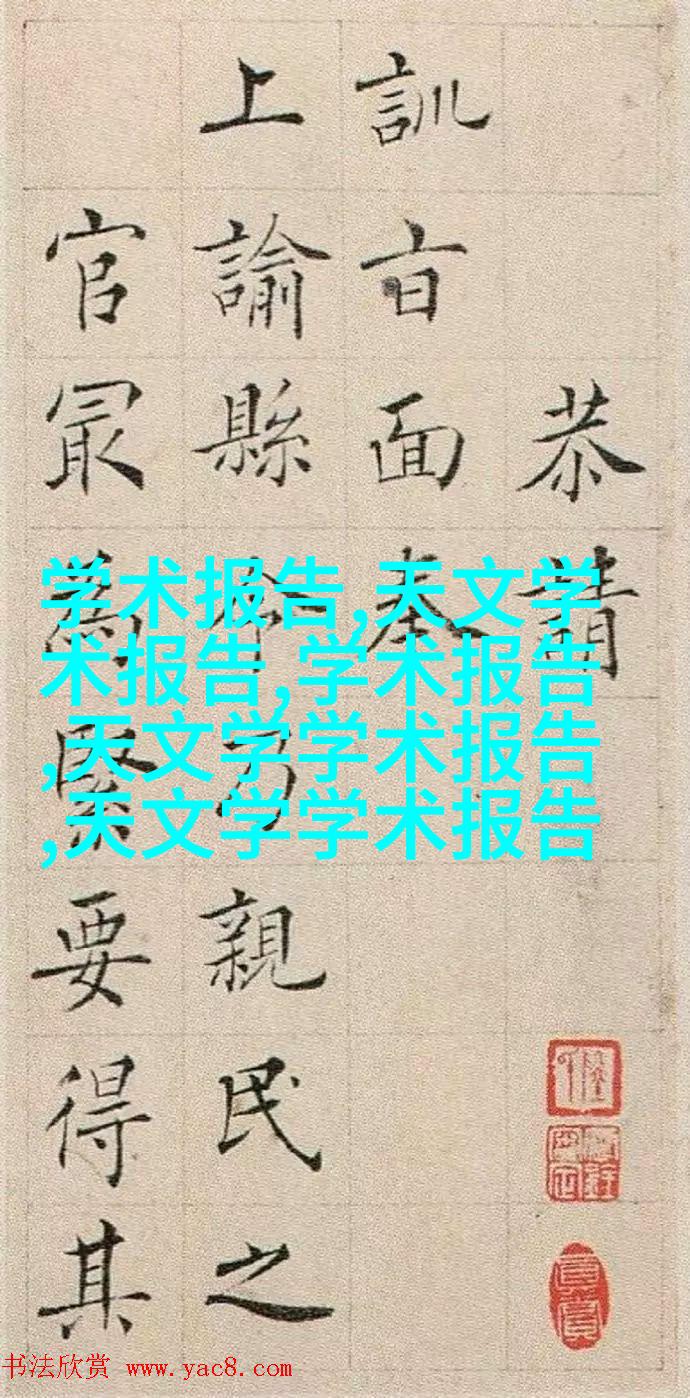 恭請
訓旨面奉
上諭縣令乃親民之
官冣為緊要得其
学术报告,天文学
术报告,学术报告
,天文学学术报告
,天文学学术报告
书法欣赏 www.yac8.com